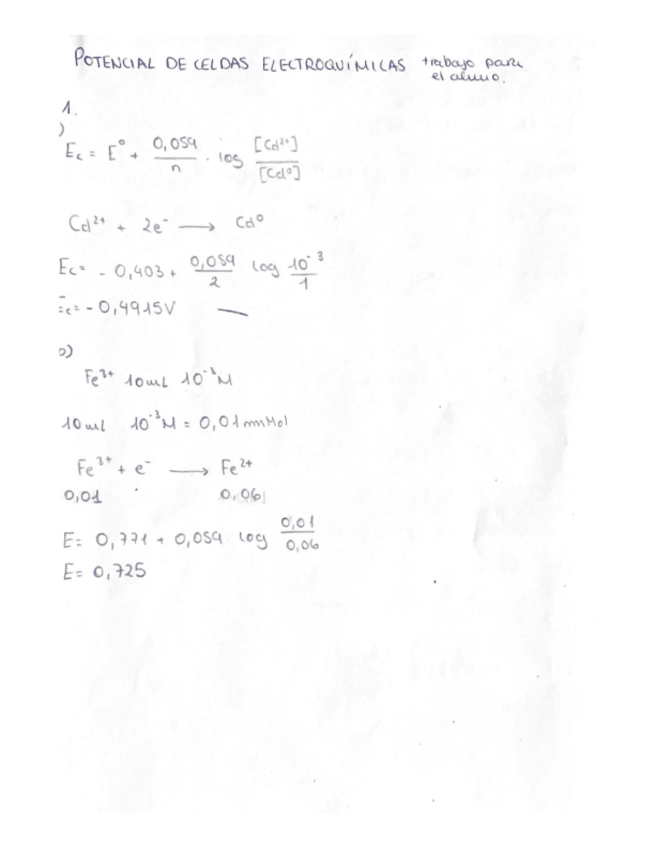 POTENCIAL DE CELDAS ELECTROQUÍMICAS trabajo para el alumno.
1.
)
Ec = E° + 0,059/n · log [Cd²⁺]/[Cd⁰]
Cd²⁺ + 2e⁻ → Cd⁰
Ec= - 0,403 + 0,059/2 log 10⁻³/1
Ec= - 0,4915V
)
Fe³⁺ 10mL 10⁻³M
10ml 10⁻³M = 0,01 mmMol
Fe³⁺ + e⁻ → Fe²⁺
0,01 0,06
E= 0,771 + 0,059 log 0,01/0,06
E= 0,725